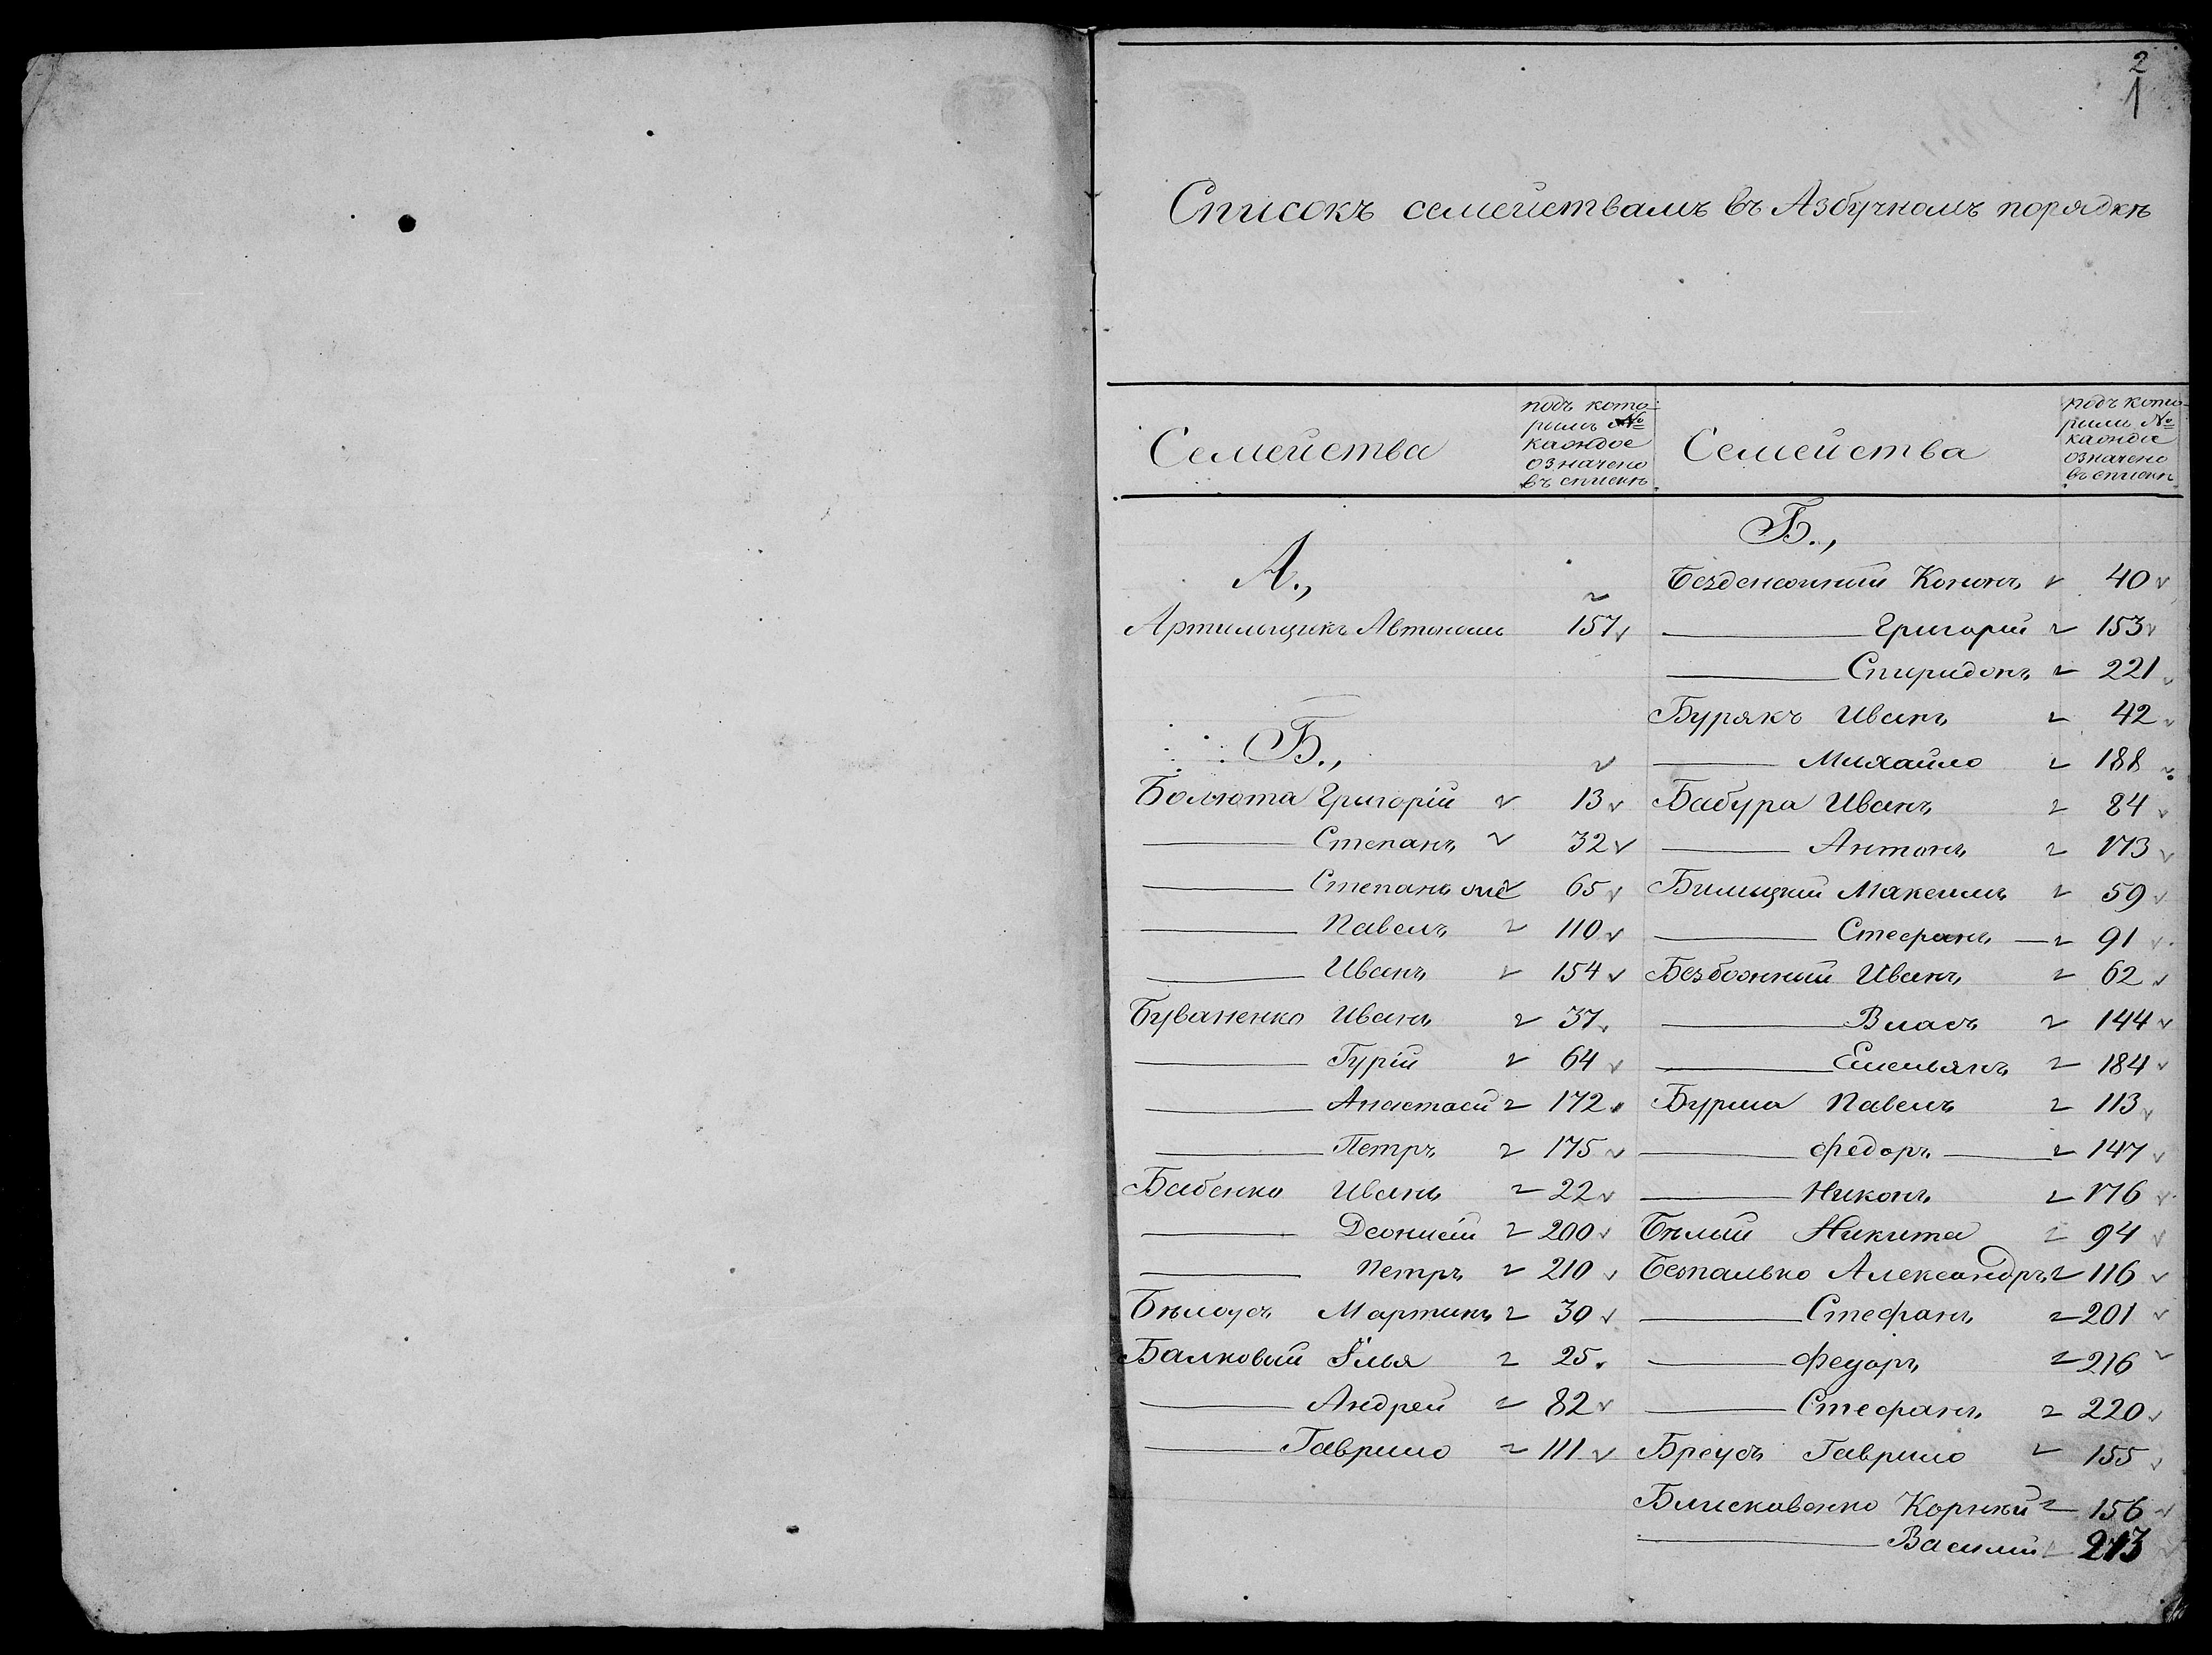 2
1
Списокъ семействамъ въ Азбучномъ порядкѣ
Семейства
подъ кото-
рымъ №
каждое
означено
въ списке
А.,
Артильщикъ Автономъ 157
Б.,
Болюта Григорій 13
Степанъ 32
Степанъ 65
Павелъ 110
Иванъ 154
Буваненко Иванъ 37
Гурій 64
Анастасій 172
Петръ 175
Бабенко Иванъ 22
Деонисій 200
Петръ 210
Бѣлоусъ Мартинъ 30
Балковый Илья 25
Андрей 82
Гаврило 111
Семейства
подъ кото-
рымъ №
каждое
означено
въ списке
Б.,
Безденежный Кононъ 40
Григорій 153
Спиридонъ 221
Бурякъ Иванъ 42
Михайло 188
Бабура Иванъ 84
Антонъ 173
Билицкій Максимъ 59
Стефанъ 91
Безбожный Иванъ 62
Власъ 144
Емельянъ 184
Бурма Павелъ 113
Федоръ 147
Никонъ 176
Бѣлый Никита 94
Беспалько Александръ 116
Стефанъ 201
Федоръ 216
Стефанъ 220
Бреусъ Гаврило 155
Блисковенко Корнѣй 156
Василій 213